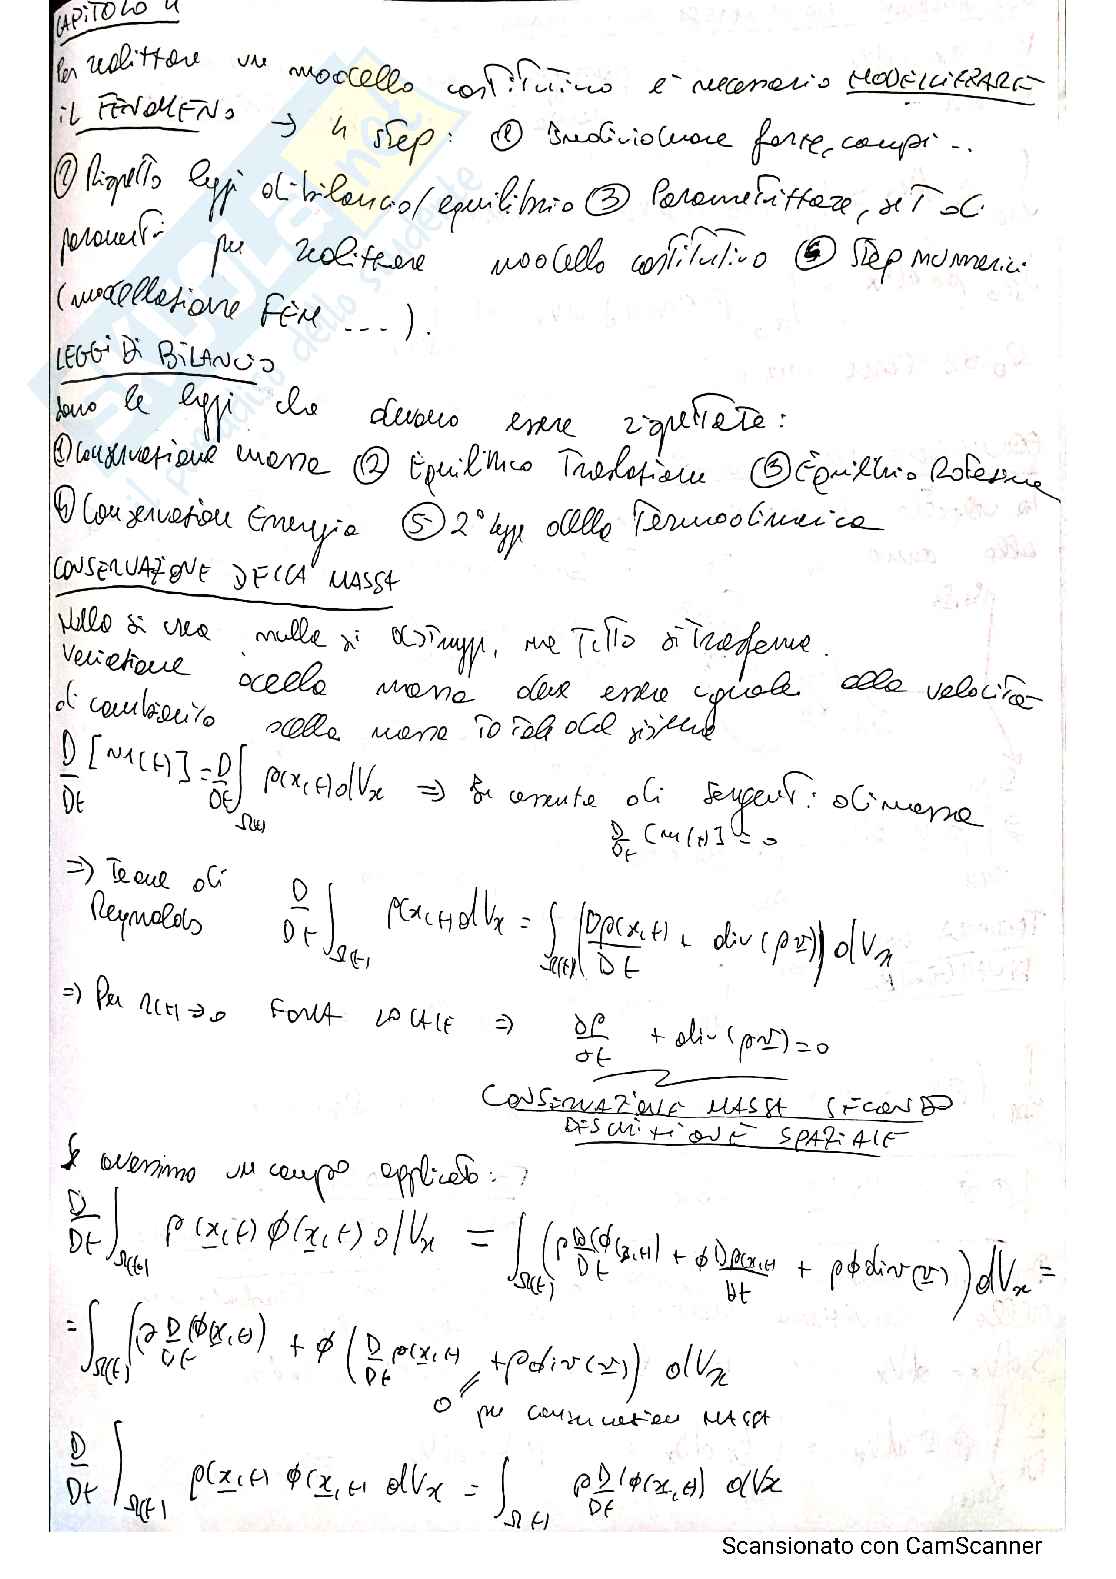 CAPITOLO 4
Per realizzare un modello costitutivo è necessario MODELLIZZARE
il FENOMENO → 4 step: ① Individuare forze, campi ..
② Rispetto leggi di bilancio/equilibrio ③ Parametrizzare, set di
parametri per realizzare modello costitutivo ④ Step numerici
(modellazione FEM ...).
LEGGI DI BILANCIO
Sono le leggi che devono essere rispettate:
① Conservazione massa ② Equilibrio Traslazione ③ Equilibrio Rotazione
④ Conservazione Energia ⑤ 2° legge della Termodinamica
CONSERVAZIONE DELLA MASSA
Nulla si crea nulla si distrugge, ma tutto si trasforma.
Variazione della massa deve essere uguale alla velocità
di cambiamento della massa totale del sistema
D/Dt [M(t)] = D/Dt ∫Ω(t) ρ(x,t) dVx ⇒ In assenza di sorgenti di massa
D/Dt [M(t)] = 0
⇒ Teorema di Reynolds D/Dt ∫Ω(t) ρ(x,t) dVx = ∫Ω(t) (Dρ(x,t)/Dt + div(ρv)) dVx
⇒ Per Ω(t)→0 FORMA LOCALE ⇒ ∂ρ/∂t + div(ρv) = 0
CONSERVAZIONE MASSA SECONDO
DESCRIZIONE SPAZIALE
Se avessimo un campo applicato:
D/Dt ∫Ω(t) ρ(x,t) ϕ(x,t) dVx = ∫Ω(t) (ρ D/Dt (ϕ(x,t)) + ϕ Dρ(x,t)/Dt + ρϕ div(v)) dVx =
= ∫Ω(t) (ρ D/Dt (ϕ(x,t)) + ϕ (D/Dt ρ(x,t) + ρ div(v))) dVx
0 per conservazione MASSA
D/Dt ∫Ω(t) ρ(x,t) ϕ(x,t) dVx = ∫Ω(t) ρ D/Dt (ϕ(x,t)) dVx
Scansionato con CamScanner